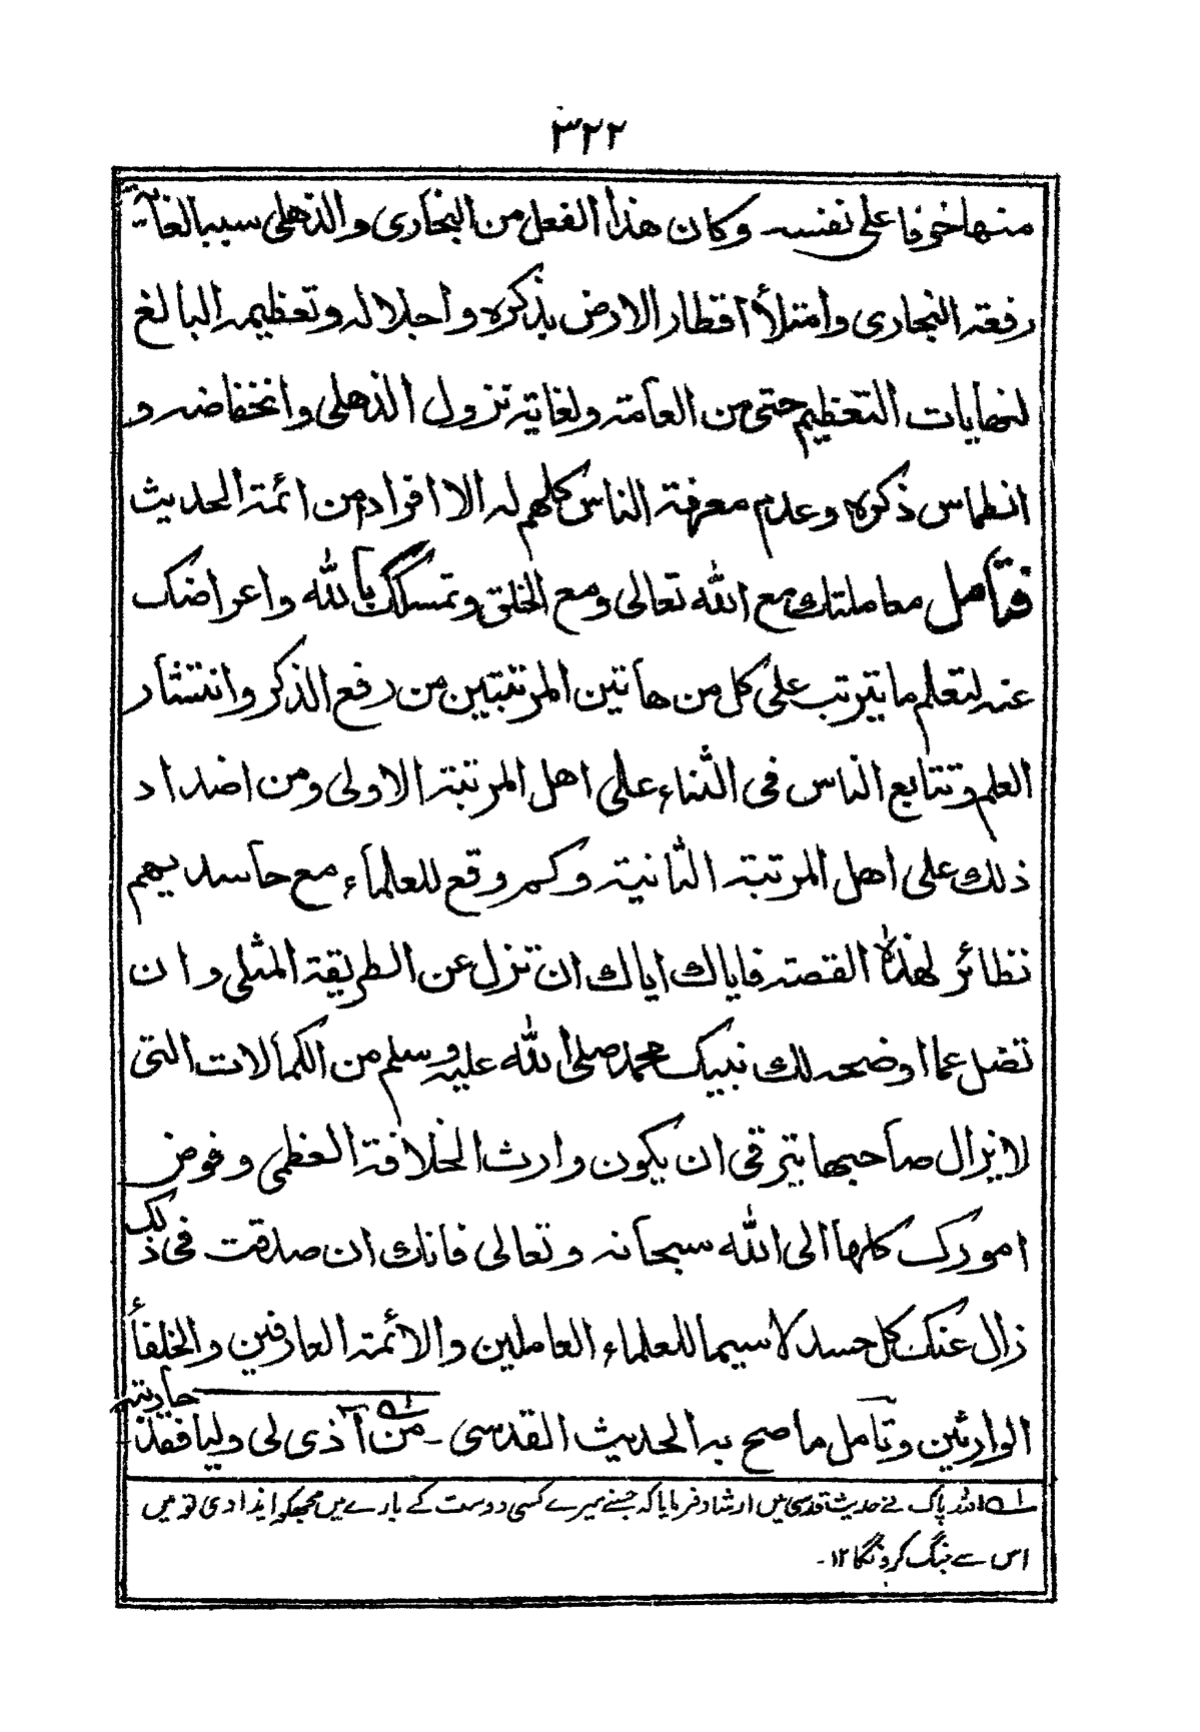 ٣٢٢
منها خوفا على نفسه وكان هذا الفعل من البخاری والذهلی سببا لغایة
رفعته البخاری وامتلأ اقطار الارض بذکره واجلاله وتعظیمه البالغ
لنهایات التعظیم حتی من العامة ولغایة نزول الذهلی وانخفاضه و
انطماس ذکره وعدم معرفة الناس کلهم له الا افراد من ائمة الحدیث
فتأمل معاملتك مع الله تعالی ومع الخلق وتمسکك بالله واعراضك
عنه لتعلم ما یترتب علی کل من هاتین المرتبتین من رفع الذکر وانتشار
العلم وتتابع الناس فی الثناء علی اهل المرتبة الاولی ومن اضداد
ذلك علی اهل المرتبة الثانیة وکم وقع للعلماء مع حاسدیهم
نظائر لهذه القصة فایاك ایاك ان تنزل عن الطریقة المثلی وان
تضل عما اوضحه لك نبیك محمد صلی الله علیه وسلم من الکمالات التی
لا یزال صاحبها یترقی ان یکون وارث الخلافة العظمی وفوض
امورك کلها الی الله سبحانه وتعالی فانك ان صدقت فی ذلك
زال عنك کل حسد لا سیما للعلماء العاملین والائمة العارفین والخلفاء
الوارثین وتأمل ما صح به الحدیث القدسی۔ من آذی لی ولیا فقد حاربته
لہ اللہ پاک نے حدیث قدسی میں ارشاد فرمایا کہ جسنے میرے کسی دوست کے بارے میں مجھکو ایذا دی تو میں
اس سے جنگ کرونگا ١٢۔